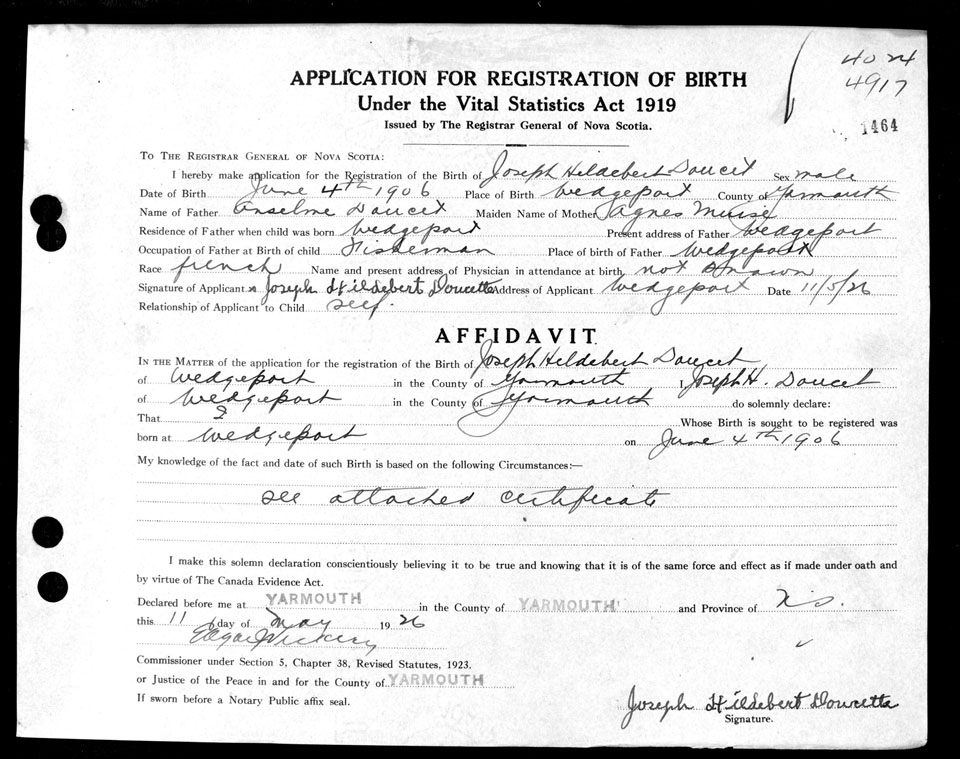 4024
4917
1464
APPLICATION FOR REGISTRATION OF BIRTH
Under the Vital Statistics Act 1919
Issued by The Registrar General of Nova Scotia.
TO THE REGISTRAR GENERAL OF NOVA SCOTIA:
I hereby make application for the Registration of the Birth of Joseph Hildebert Doucet Sex male
Date of Birth June 4th 1906 Place of Birth Wedgeport County of Yarmouth
Name of Father Anselme Doucet Maiden Name of Mother Agnes Muise
Residence of Father when child was born Wedgeport Present address of Father Wedgeport
Occupation of Father at Birth of child Fisherman Place of birth of Father Wedgeport
Race french Name and present address of Physician in attendance at birth not known
Signature of Applicant Joseph Hildebert Doucette Address of Applicant Wedgeport Date 11/5/26
Relationship of Applicant to Child self.
AFFIDAVIT
IN THE MATTER of the application for the registration of the Birth of Joseph Hildebert Doucet
of Wedgeport in the County of Yarmouth I, Joseph H. Doucet
of Wedgeport in the County of Yarmouth do solemnly declare:
That I Whose Birth is sought to be registered was
born at Wedgeport on June 4th 1906
My knowledge of the fact and date of such Birth is based on the following Circumstances:—
see attached certificate
I make this solemn declaration conscientiously believing it to be true and knowing that it is of the same force and effect as if made under oath and
by virtue of The Canada Evidence Act.
Declared before me at YARMOUTH in the County of YARMOUTH and Province of N.S.
this 11 day of May 1926
Edgar J Vickery
Commissioner under Section 5, Chapter 38, Revised Statutes, 1923.
or Justice of the Peace in and for the County of YARMOUTH
If sworn before a Notary Public affix seal.
Joseph Hildebert Doucette
Signature.